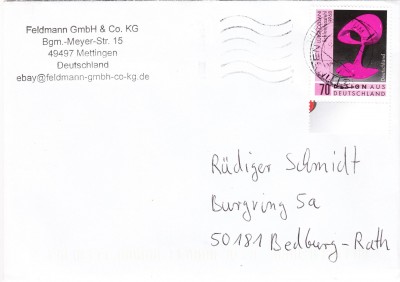 Feldmann GmbH & Co. KG
Bgm.-Meyer-Str. 15
49497 Mettingen
Deutschland
ebay@feldmann-gmbh-co-kg.de
70
DESIGN AUS
DEUTSCHLAND
Rüdiger Schmidt
Burgring 5a
50181 Bedburg-Rath